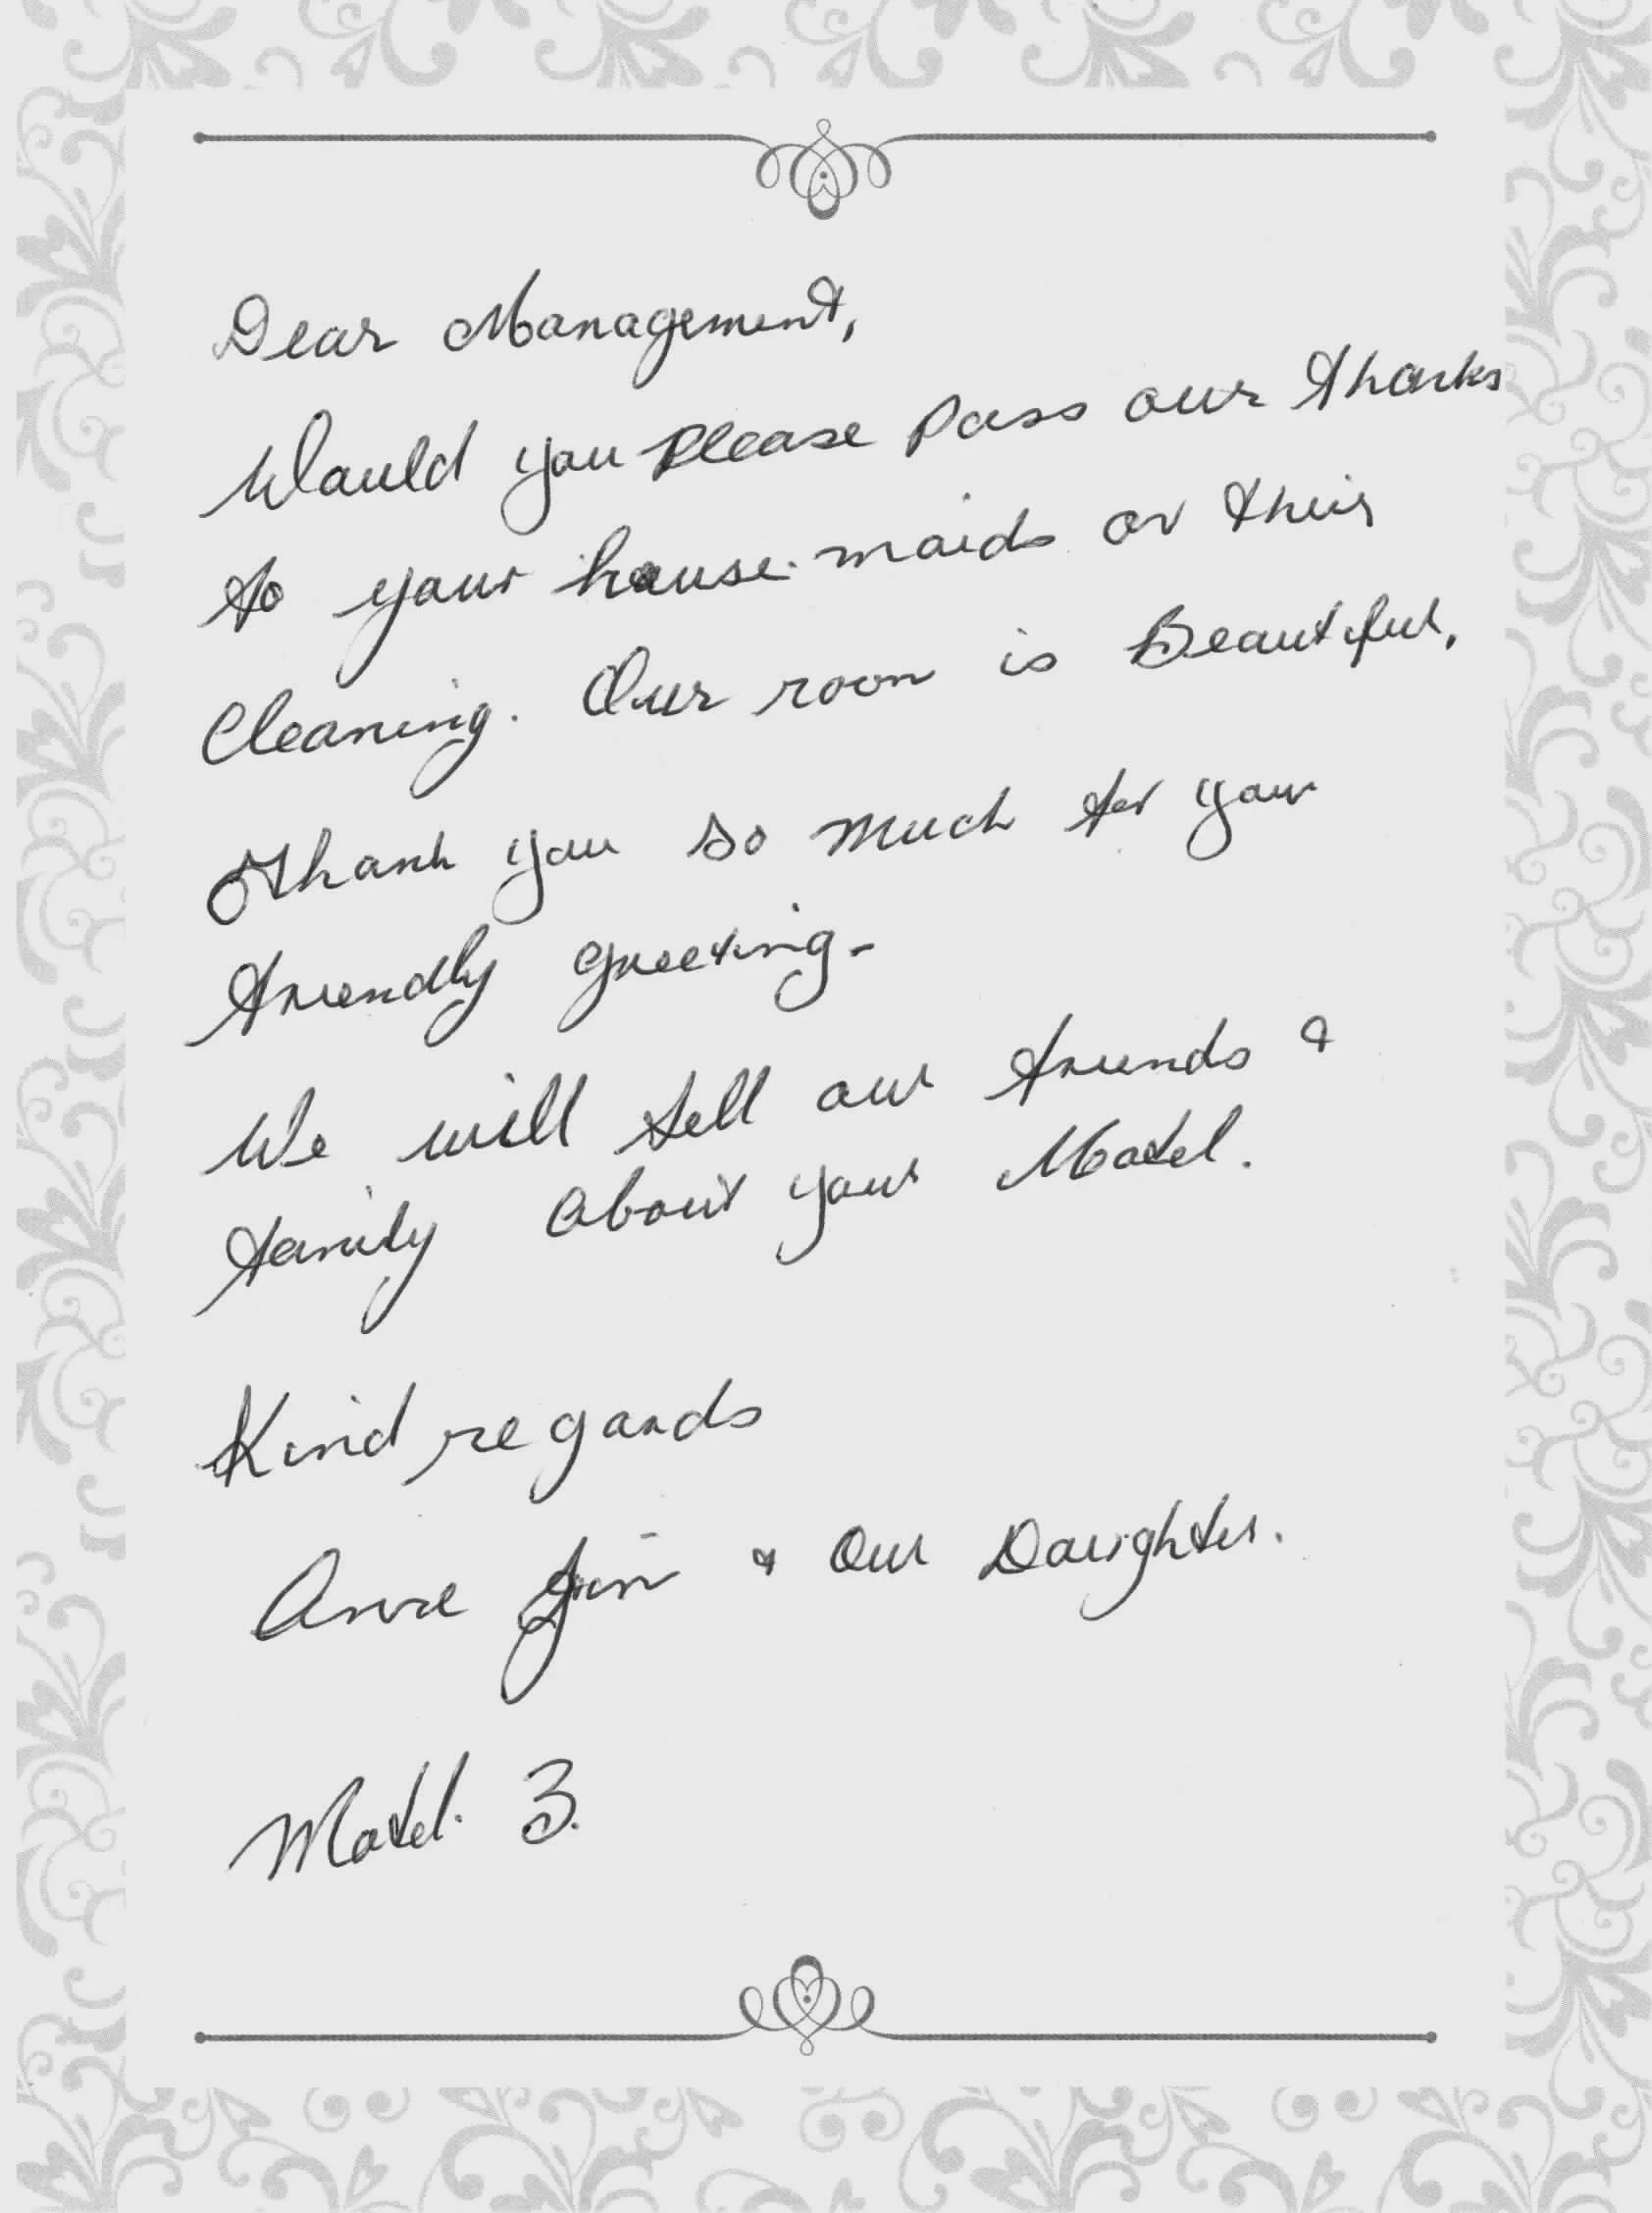 Dear Management,
Would you Please Pass our thanks
to your house.maids on their
Cleaning. Our room is Beautiful,
Thank you so much for your
friendly greeting-
We will tell our friends &
family about your Motel.
Kind regards
Anne Jim & Our Daughter.
Motel. 3.